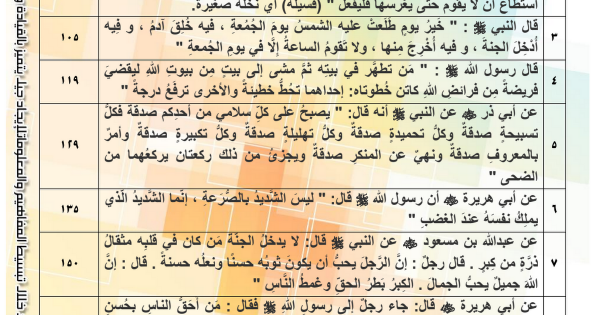 استطاع أن لا يقوم حتى يغرسها فليفعل " (فسيلة) أي نخلة صغيرة.
٣ قال النبي ﷺ : " خَيرُ يومٍ طَلَعتْ عليه الشمسُ يومَ الجُمُعةِ ، فيه خُلِقَ آدمُ ، و فيه ١٠٥
أُدْخِلَ الجنةَ ، و فيه أُخْرِجَ مِنها ، ولا تَقومُ الساعةُ إلَّا في يومِ الجُمعةِ "
٤ قال رسول الله ﷺ : " مَن تطَهَّر في بيتِه ثمَّ مشى إلى بيتٍ مِن بيوتِ اللهِ ليقضيَ ١١٩
فريضةً مِن فرائضِ اللهِ كانتْ خُطوتاه: إحداهما تحُطُّ خطيئةً والأخرى ترفعُ درجةً "
عن أبي ذر ﷺ عن النبي ﷺ أنه قال: " يصبحُ على كلِّ سلامي من أحدِكم صدقة فكلُّ
تسبيحةٍ صدقةٌ وكلُّ تحميدةٍ صدقةٌ وكلُّ تهليلةٍ صدقةٌ وكلُّ تكبيرةٍ صدقةٌ وأمرٌ
٥ بالمعروفِ صدقةٌ ونهيٌ عن المنكرِ صدقةٌ ويجزئُ من ذلك ركعتان يركعُهما من ١٢٩
الضحى "
٦ عن أبي هريرة أن رسول الله ﷺ قال: " ليسَ الشَّديدُ بالصُّرَعةِ ، إنَّما الشَّديدُ الَّذي ١٣٥
يملِكُ نفسَهُ عندَ الغضبِ "
عن عبدالله بن مسعود عن النبي ﷺ قال: لا يدخلُ الجنَّةَ مَن كان في قلبِه مثقالُ
٧ ذرَّةٍ من كِبرٍ . قال رجلٌ : إنَّ الرَّجلَ يحبُّ أن يكونَ ثوبُه حسنًا ونعلُه حسنةً . قال : إنَّ ١٥٠
اللهَ جميلٌ يحبُّ الجمالَ . الكبرُ بَطَرُ الحقِّ وغَمطُ النَّاسِ "
عن أبي هريرة قال: جاء رجلٌ إلى رسولِ اللهِ ﷺ فقال : مَن أحَقُّ الناسِ بحُسنِ